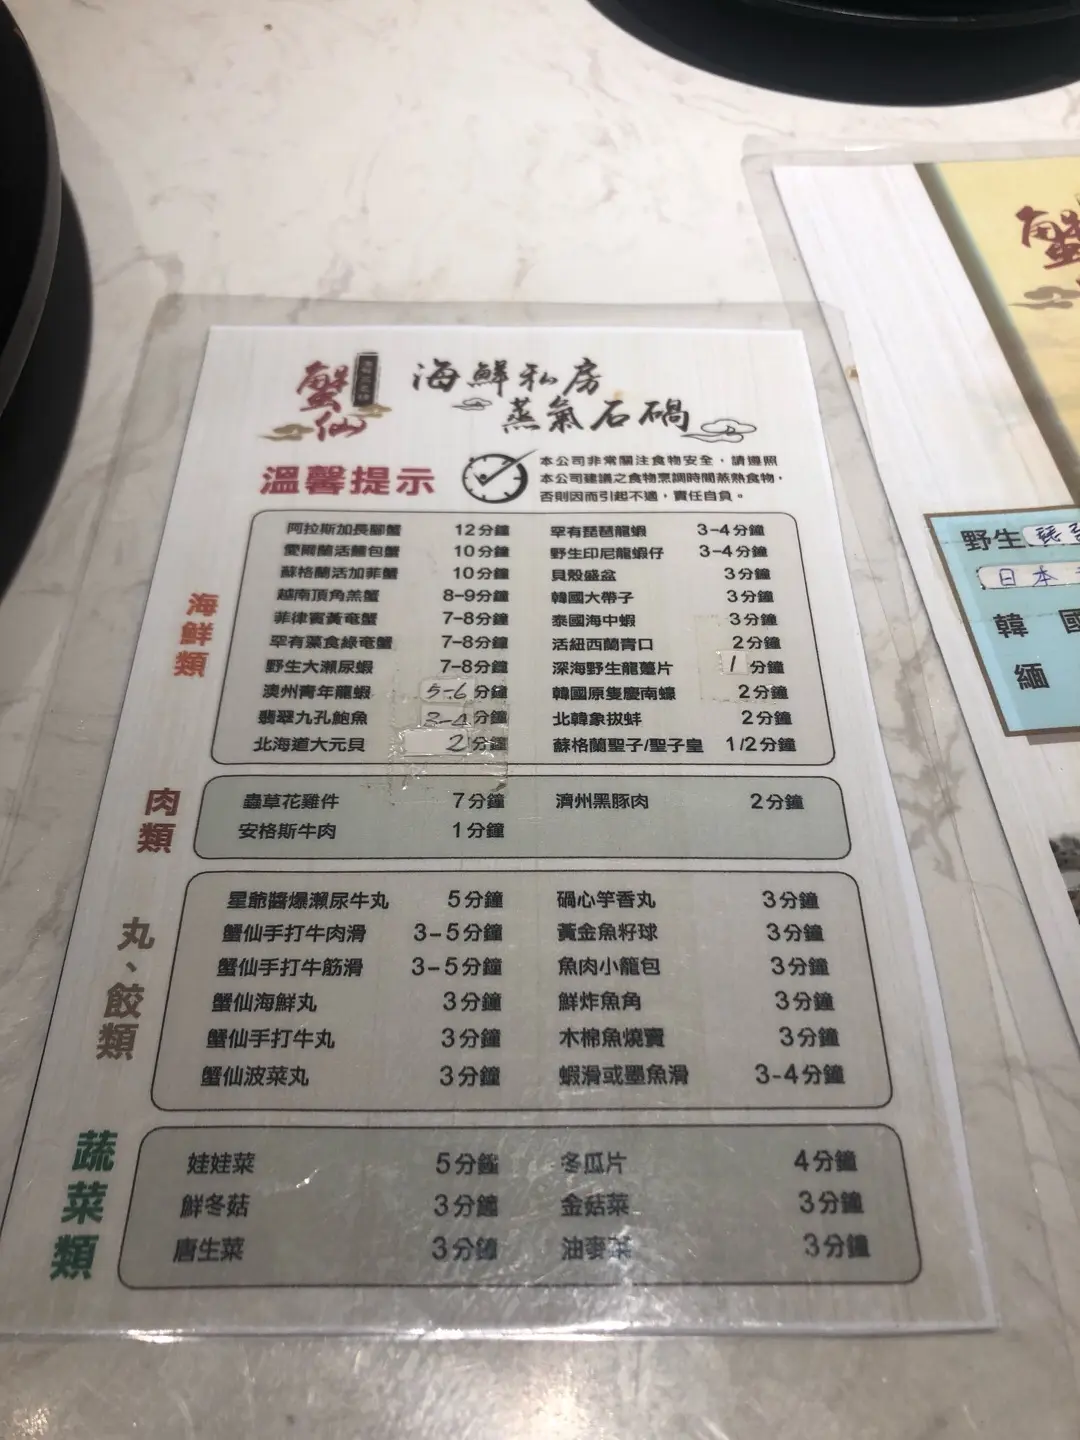 蟹仙
海鮮私房
蒸氣石鍋
溫馨提示
本公司非常關注食物安全，請遵照
本公司建議之食物烹調時間蒸熟食物，
否則因而引起不適，責任自負。
海鮮類
阿拉斯加長腳蟹 12分鐘 罕有琵琶龍蝦 3-4分鐘
愛爾蘭活麵包蟹 10分鐘 野生印尼龍蝦仔 3-4分鐘
蘇格蘭活加菲蟹 10分鐘 貝殼盛盆 3分鐘
越南頂角羔蟹 8-9分鐘 韓國大帶子 3分鐘
菲律賓黃奄蟹 7-8分鐘 泰國海中蝦 3分鐘
罕有藻食綠奄蟹 7-8分鐘 活紐西蘭青口 2分鐘
野生大瀨尿蝦 7-8分鐘 深海野生龍躉片 1分鐘
澳州青年龍蝦 5-6分鐘 韓國原隻慶南蠔 2分鐘
翡翠九孔鮑魚 3-4分鐘 北韓象拔蚌 2分鐘
北海道大元貝 2分鐘 蘇格蘭聖子/聖子皇 1/2分鐘
肉類
蟲草花雞件 7分鐘 濟州黑豚肉 2分鐘
安格斯牛肉 1分鐘
丸、餃類
星爺醬爆瀨尿牛丸 5分鐘 鍋心竽香丸 3分鐘
蟹仙手打牛肉滑 3-5分鐘 黃金魚籽球 3分鐘
蟹仙手打牛筋滑 3-5分鐘 魚肉小籠包 3分鐘
蟹仙海鮮丸 3分鐘 鮮炸魚角 3分鐘
蟹仙手打牛丸 3分鐘 木棉魚燒賣 3分鐘
蟹仙波菜丸 3分鐘 蝦滑或墨魚滑 3-4分鐘
蔬菜類
娃娃菜 5分鐘 冬瓜片 4分鐘
鮮冬菇 3分鐘 金菇菜 3分鐘
唐生菜 3分鐘 油麥菜 3分鐘
蟹
野生
日本
韓國
緬